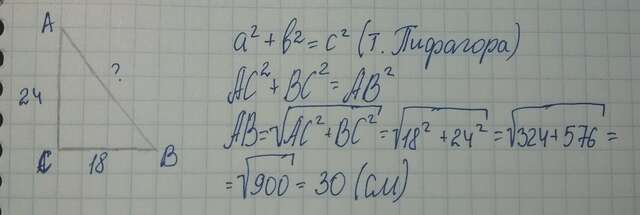 A
?
24
C 18 B
a² + b² = c² (т. Пифагора)
AC² + BC² = AB²
AB = √AC² + BC² = √18² + 24² = √324 + 576 =
= √900 = 30 (см)